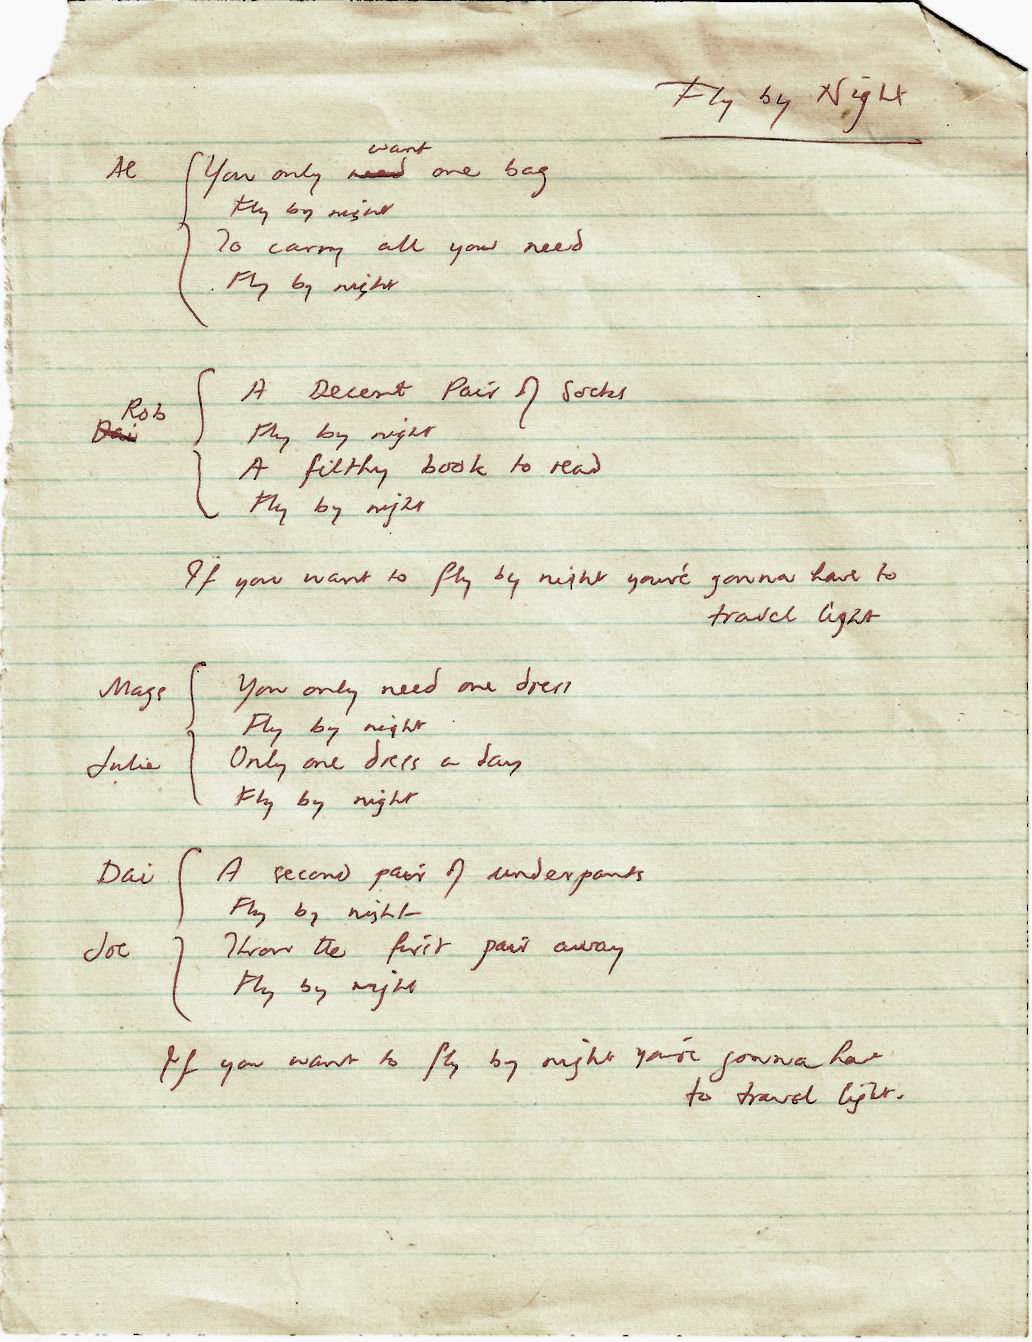 Fly by Night
want
Al You only need one bag
Fly by night
To carry all your need
Fly by night
A Decent Pair of Socks
Rob
Dai Fly by night
A filthy book to read
Fly by night
If you want to fly by night you're gonna have to
travel light
Mags You only need one dress
Fly by night
Julie Only one dress a day
Fly by night
Dai A second pair of underpants
Fly by night
Joe Throw the first pair away
Fly by night
If you want to fly by night you're gonna have
to travel light.